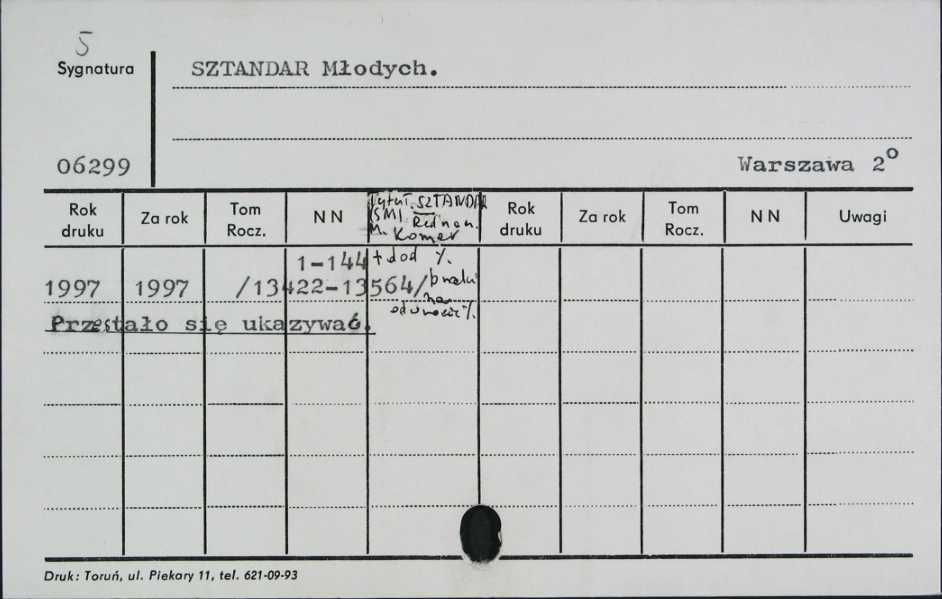 5
Sygnatura SZTANDAR Młodych.
06299 Warszawa 2º
Rok druku Za rok Tom Rocz. N N Tytuł. SZTANDAR Rok druku Za rok Tom Rocz. N N Uwagi
(SM)
M. Komar
1-144 + dod %.
1997 1997 /13422-13564/ braki
na
odwrocie %.
Przestało się ukazywać.
Druk: Toruń, ul. Piekary 11, tel. 621-09-93